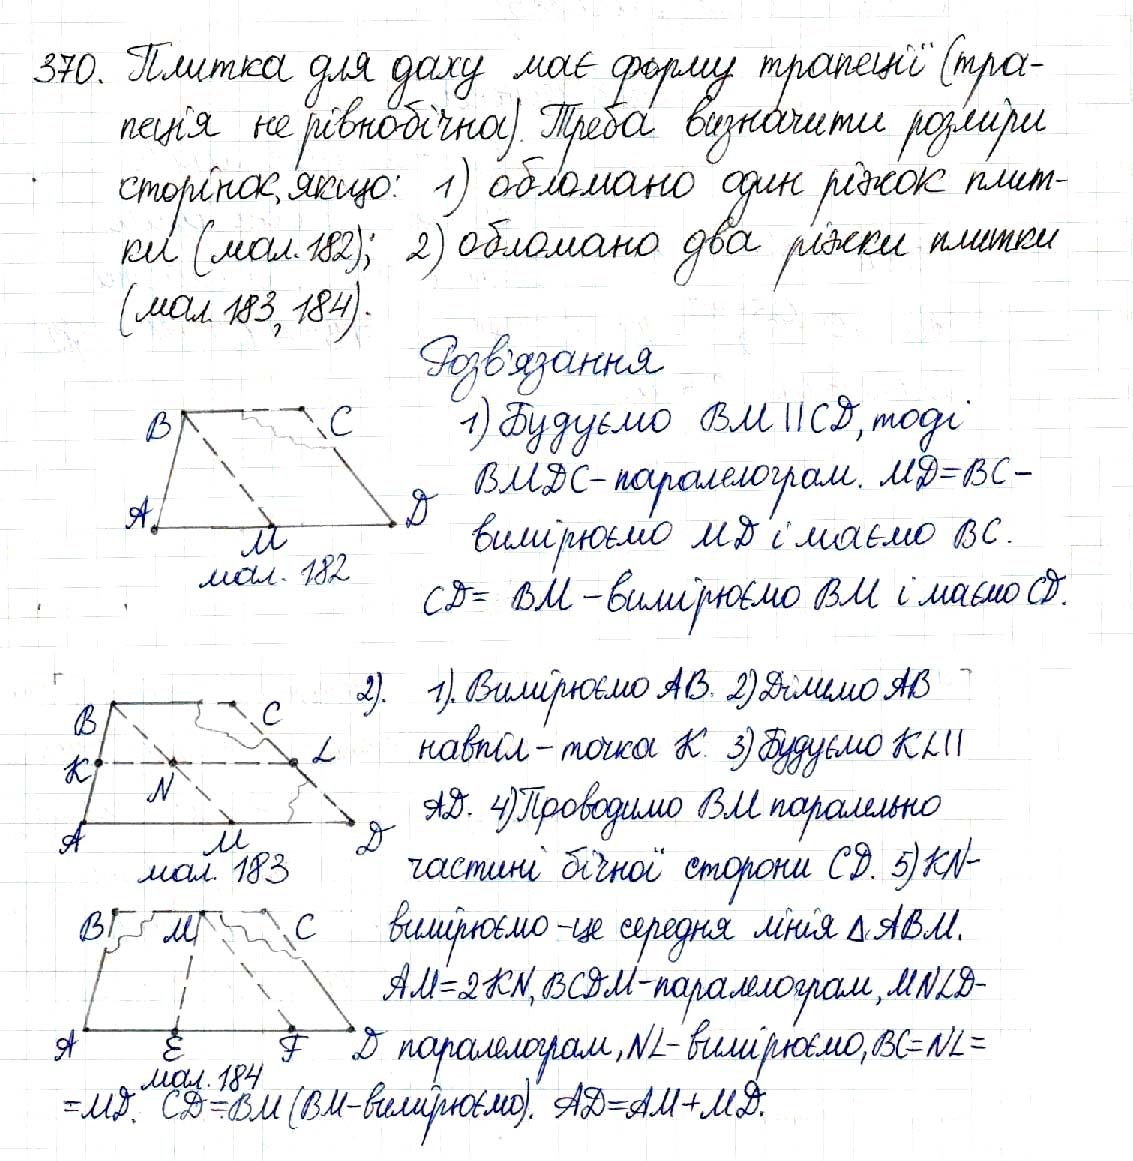 370. Плитка для даху має форму трапеції (тра-
пеція не рівнобічна). Треба визначити розміри
сторінок, якщо: 1) обломано один ріжок плит-
ки (мал. 182); 2) обломано два ріжки плитки
(мал. 183, 184).
Розв'язання
B C
A M D
мал. 182
1) Будуємо BM || CD, тоді
BMDC - паралелограм. MD = BC -
вимірюємо MD і маємо BC.
CD = BM - вимірюємо BM і маємо CD.
B C
K N L
A M D
мал. 183
2). 1). Вимірюємо AB. 2) Ділимо AB
навпіл - точка K. 3) Будуємо KL ||
AD. 4) Проводимо BM паралельно
частині бічної сторони CD. 5) KN -
B M C
A E F D
мал. 184
вимірюємо - це середня лінія △ ABM.
AM = 2KN, BCDM - паралелограм, MNLD -
паралелограм, NL - вимірюємо, BC = NL =
= MD. CD = BM (BM - вимірюємо). AD = AM + MD.